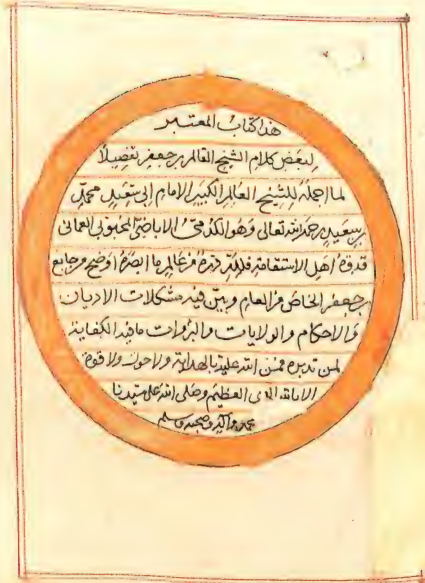 هذا كتاب المعتبر
لبعض كلام الشيخ العالم بن جعفر تفصيلاً
لما اجمله للشيخ العالم الكبير الامام ابي سعيد محمد بن
سعيد رحمه الله تعالى وهو الكدمي الاباضي المحبوبي العماني
قدوة اهل الاستقامة فلله دره من عالم ما ابصره اوضح من جامع
بن جعفر الخاص من العام وبين فيه مشكلات الاديان
والاحكام والولايات والبروات ما فيه الكفاية
لمن تدبره ممن الله عليه بالهداية ولا حول ولا قوة
الا بالله العلي العظيم وصلى الله على سيدنا
محمد وآله وصحبه وسلم